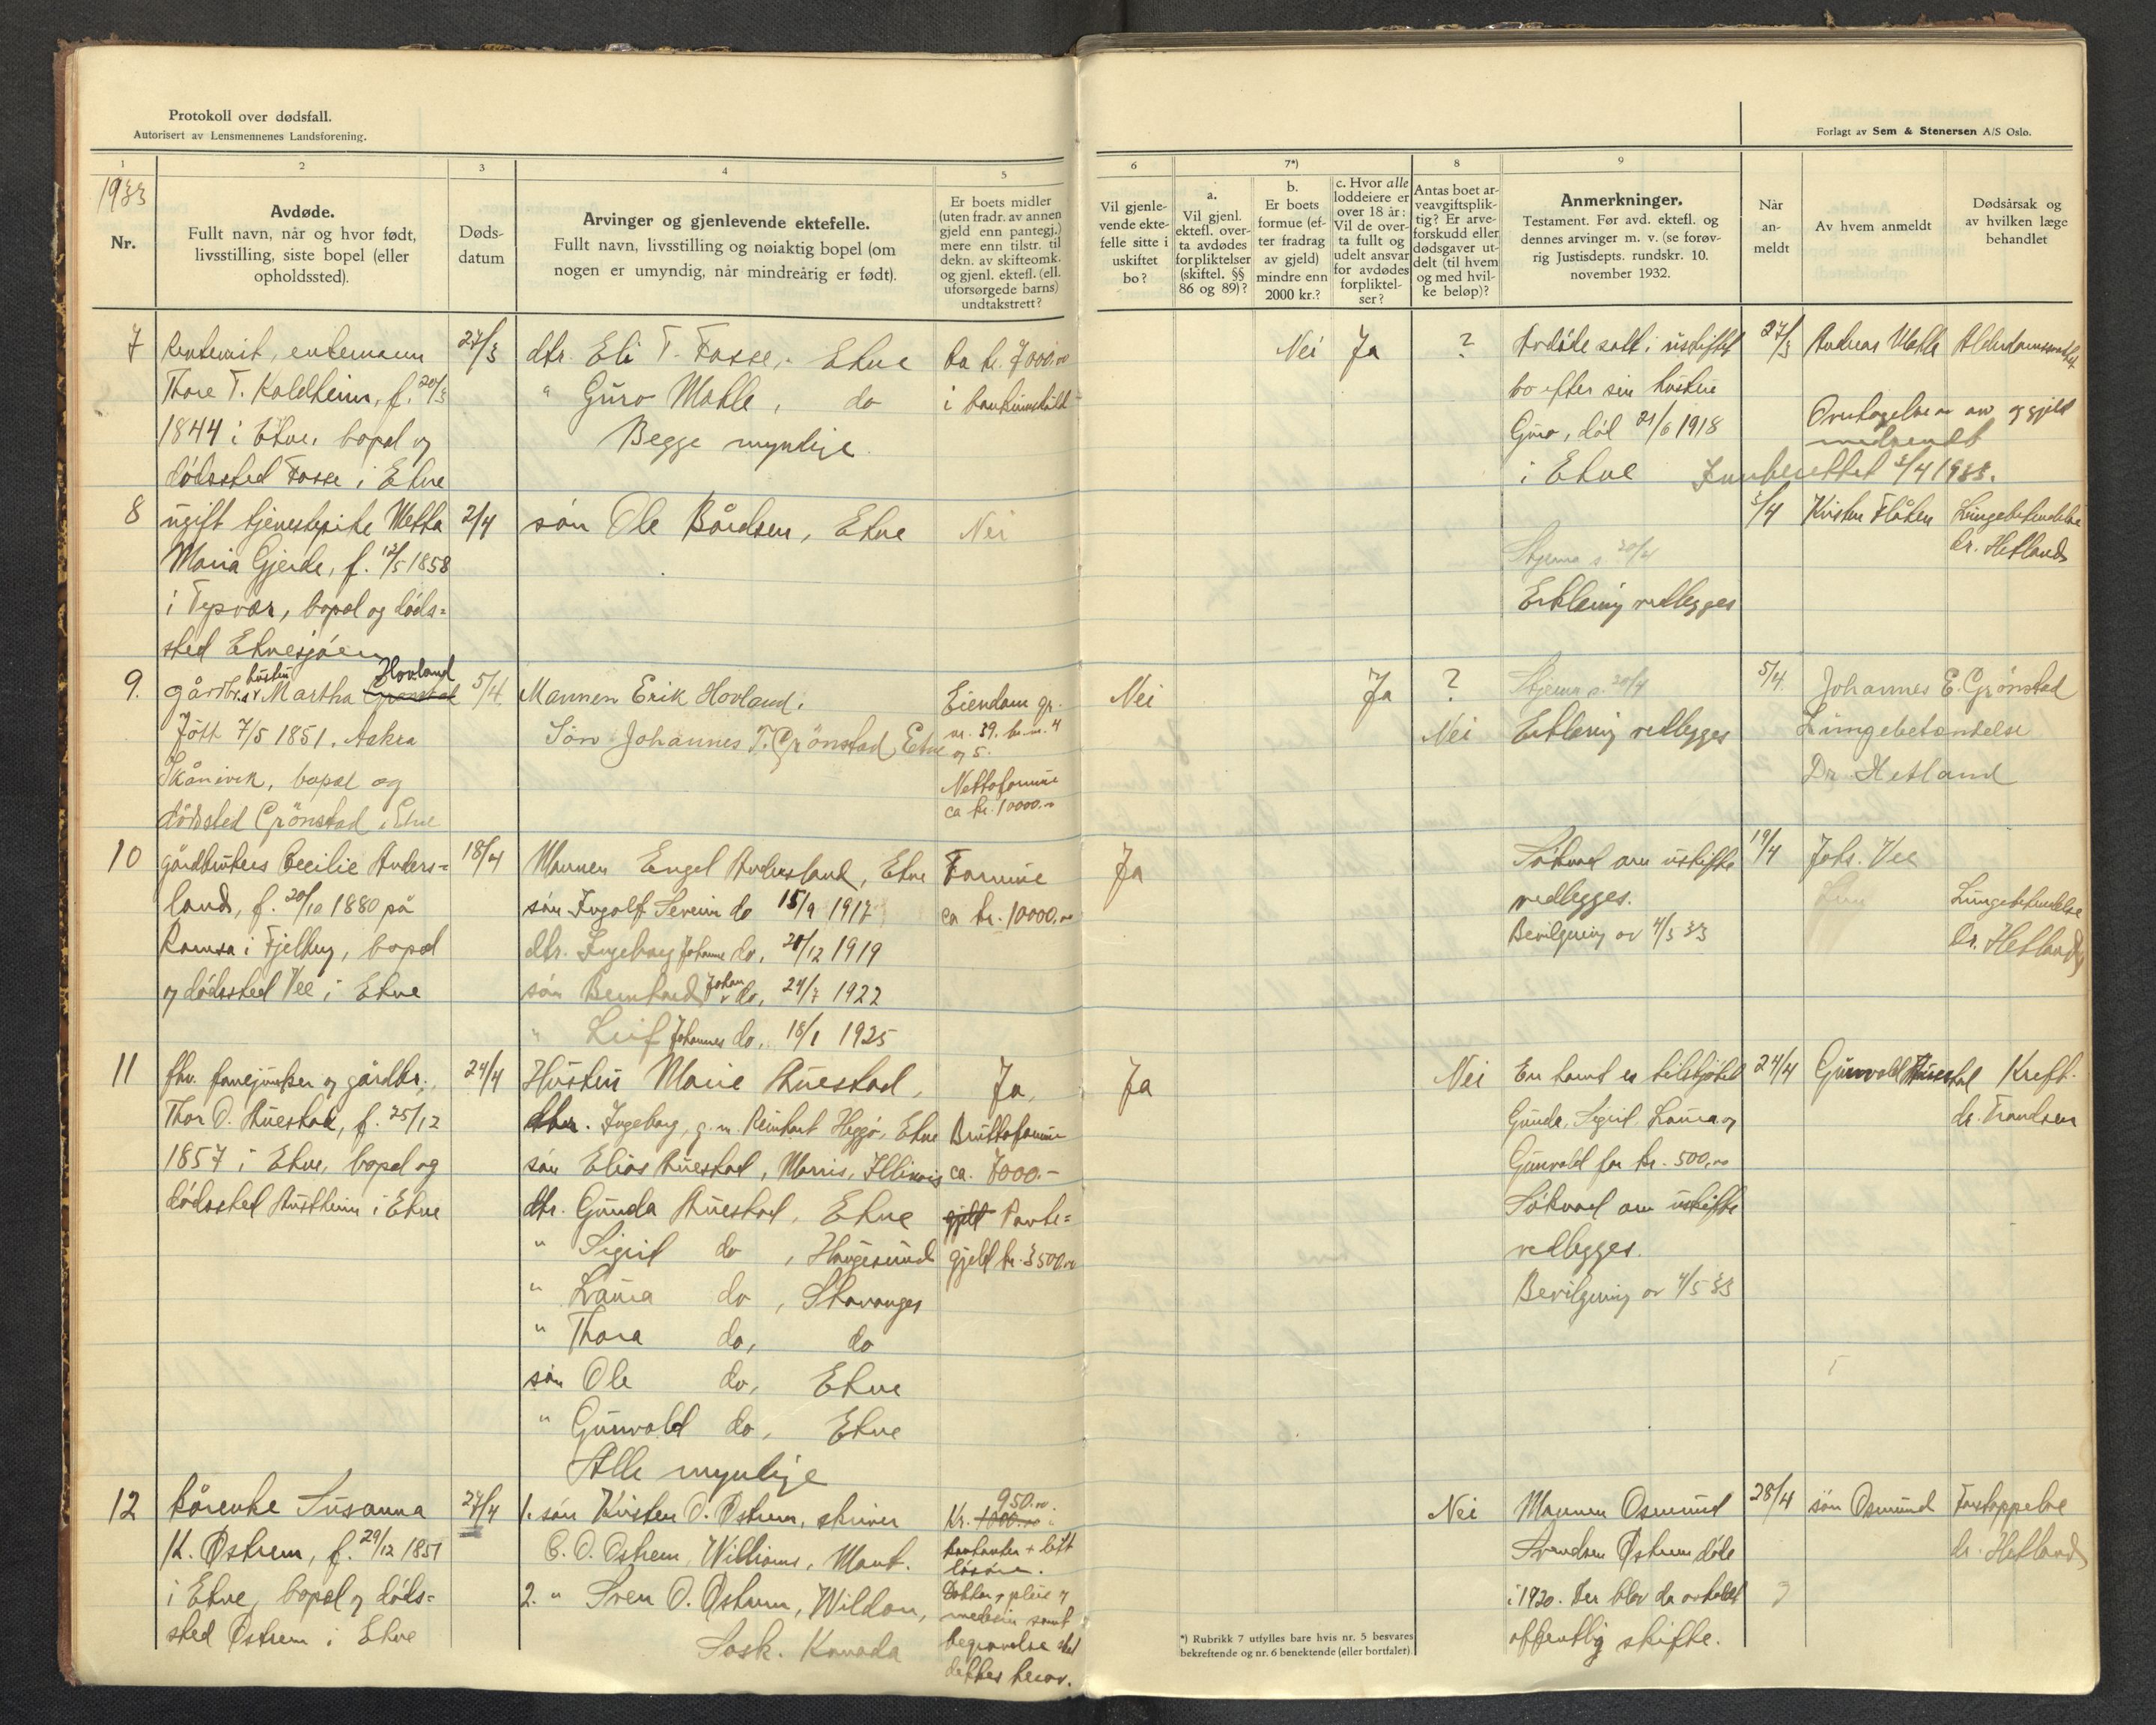 Protokoll over dødsfall.
Autorisert av Lensmennenes Landsforening.
Forlagt av Sem & Stenersen A/S Oslo.
1
2
3
4
5
6
7*)
8
9
1933
Nr.
Avdøde.
Fullt navn, når og hvor født,
livsstilling, siste bopel (eller
opholdssted).
Døds-
datum
Arvinger og gjenlevende ektefelle.
Fullt navn, livsstilling og nøiaktig bopel (om
nogen er umyndig, når mindreårig er født).
Er boets midler
(uten fradr. av annen
gjeld enn pantegj.)
mere enn tilstr. til
dekn. av skifteomk.
og gjenl. ektefl. (ell.
uforsørgede barns)
undtakstrett?
Vil gjenle-
vende ekte-
felle sitte i
uskiftet
bo?
a.
Vil gjenl.
ektefl. over-
ta avdødes
forpliktelser
(skiftel. §§
86 og 89)?
b.
Er boets
formue (ef-
ter fradrag
av gjeld)
mindre enn
2000 kr.?
c. Hvor alle
loddeiere er
over 18 år:
Vil de over-
ta fullt og
udelt ansvar
for avdødes
forpliktel-
ser?
Antas boet ar-
veavgiftsplik-
tig? Er arve-
forskudd eller
dødsgaver ut-
delt (til hvem
og med hvil-
ke beløp)?
Anmerkninger.
Testament. Før avd. ektefl. og
dennes arvinger m. v. (se forøv-
rig Justisdepts. rundskr. 10.
november 1932.
Når
an-
meldt
Av hvem anmeldt
Dødsårsak og
av hvilken læge
behandlet
7
enkemann
Thore T. Kaldheim, f. 20/3
1844 i Etne, bopel og
dödssted Fosse i Etne
27/3
dtr. Eli T. Fosse, Etne
" Guro Mæhle, do
Begge myndige.
ca kr. 7000.00
Nei
Ja
?
Avdöde satt i uskiftet
bo efter sin hustru
Guro, död 21/6 1918
i Etne
27/3
Andreas Mæhle
Overtagelse av arv og gjeld
medsendt
Innberettet 5/4 1933.
8
ugift tjenestepike Metta
Maria Gjerde, f. 12/5 1858
i Tysvær, bopel og döds-
sted Etnesjöen
2/4
sön Ole Bårdsen, Etne
Nei
20/4
Erklæring vedlegges
3/4
Kristen Flåten
Lungebetendelse
dr. Hetland
9.
gårdbr.s hustru Martha Grønstad Hovland
Född 7/5 1851. Aakra
Skånivik, bopel og
dödssted Grönstad i Etne
5/4
Mannen Erik Hovland.
Sön Johannes T. Grönstad Etne
Eiendom gr.
nr. 39. br. n. 4
og 5.
Nettoformue
ca kr. 10000.-
Nei
Ja
?
Nei
20/4
Erklæring vedlegges
5/4
Johannes E. Grönstad
Lungebetændelse
Dr. Hetland
10
gårdbrukers Cecilie Anders-
land, f. 20/10 1880 på
Ramsa i Fjelberg, bopel
og dödssted Vee i Etne
18/4
Mannen Engel Andersland, Etne
sön Ingolf Severin do 15/9 1917
dtr. Ingeborg Johanne do, 28/12 1919
sön Bernhard Johan do, 24/7 1922
" Leif Johannes do, 18/1 1925
Formue
ca kr. 10000.00
Ja
Söknad om uskifte
vedlegges.
Bevilgning av 4/5 33
19/4
Johs. Vee
Lungebetendelse
Dr. Hetland
11
fhv. fanejunker og gårdbr.
Thor O. Rüestad, f. 25/12
1857 i Etne, bopel og
dödssted Rustheim i Etne
24/4
Hustru Marie Rüestad,
dtr. Ingeborg, g. m. Reinhart Heggö, Etne
sön Elias Rüestad, Morris, Illinois
dtr. Gunda Rüestad, Etne
" Sigrid do, Haugesund
" Laura do, Stavanger
" Thora do, do
sön Ole do, Etne
" Gunvald do, Etne
Alle myndige
Ja,
Bruttoformue
ca. 7000.-
gjeld Pante-
gjeld kr. 3500.00
Ja
Nei
En tomt er tilskjötet
Gunda, Sigrid, Laura og
Gunvald for kr. 500,00
Söknad om uskifte
vedlegges.
Bevilgning av 4/5 33
24/4
Gunvald Rüestad
Kreft.
dr. Frandsen
12
kårenke Susanna
K. Østrem, f. 29/12 1851
i Etne, bopel og döds-
sted Østrem i Etne
27/4
1. sön Kristen O. Østrem, skriver
C. O. Ostrem, Williams, Mont.
2. " Sven O. Østrem, Wildon,
Sask. Kanada
950.00.
Kr. 1000.00 i
kontanter + litt
lösöre.
Doktor, pleie og
medisin samt
begravelse skal
dekkes herav.
Nei
Mannen Osmund
Svendsen Østrem döde
i 1920. Der blev da avholdt
offentlig skifte.
28/4
sön Osmund
Forstoppelse
dr. Hetland
*) Rubrikk 7 utfylles bare hvis nr. 5 besvares
bekreftende og nr. 6 benektende (eller bortfaller).